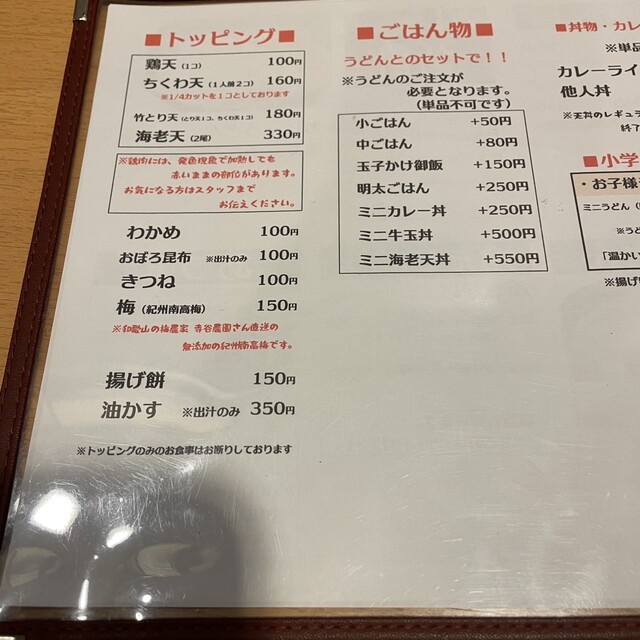 ■トッピング■
鶏天(1コ) 100円
ちくわ天(1人前2コ) 160円
※1/4カットを1コとしております
竹とり天(とり天1コ、ちくわ天1コ) 180円
海老天(2尾) 330円
※鶏肉には、発色現象で加熱しても
赤いままの部位があります。
お気になる方はスタッフまで
お伝えください。
わかめ 100円
おぼろ昆布 ※出汁のみ 100円
きつね 100円
梅(紀州南高梅) 150円
※和歌山の梅農家 寺谷農園さん直送の
無添加の紀州南高梅です。
揚げ餅 150円
油かす ※出汁のみ 350円
※トッピングのみのお食事はお断りしております
■ごはん物■
うどんとのセットで！！
※うどんのご注文が
必要となります。
(単品不可です)
小ごはん +50円
中ごはん +80円
玉子かけ御飯 +150円
明太ごはん +250円
ミニカレー丼 +250円
ミニ牛玉丼 +500円
ミニ海老天丼 +550円
■丼物・カレ
※単品
カレーライ
他人丼
※天丼のレギュラ
終了
■小学
・お子様
ミニうどん
※うど
「温かい
※揚げ物